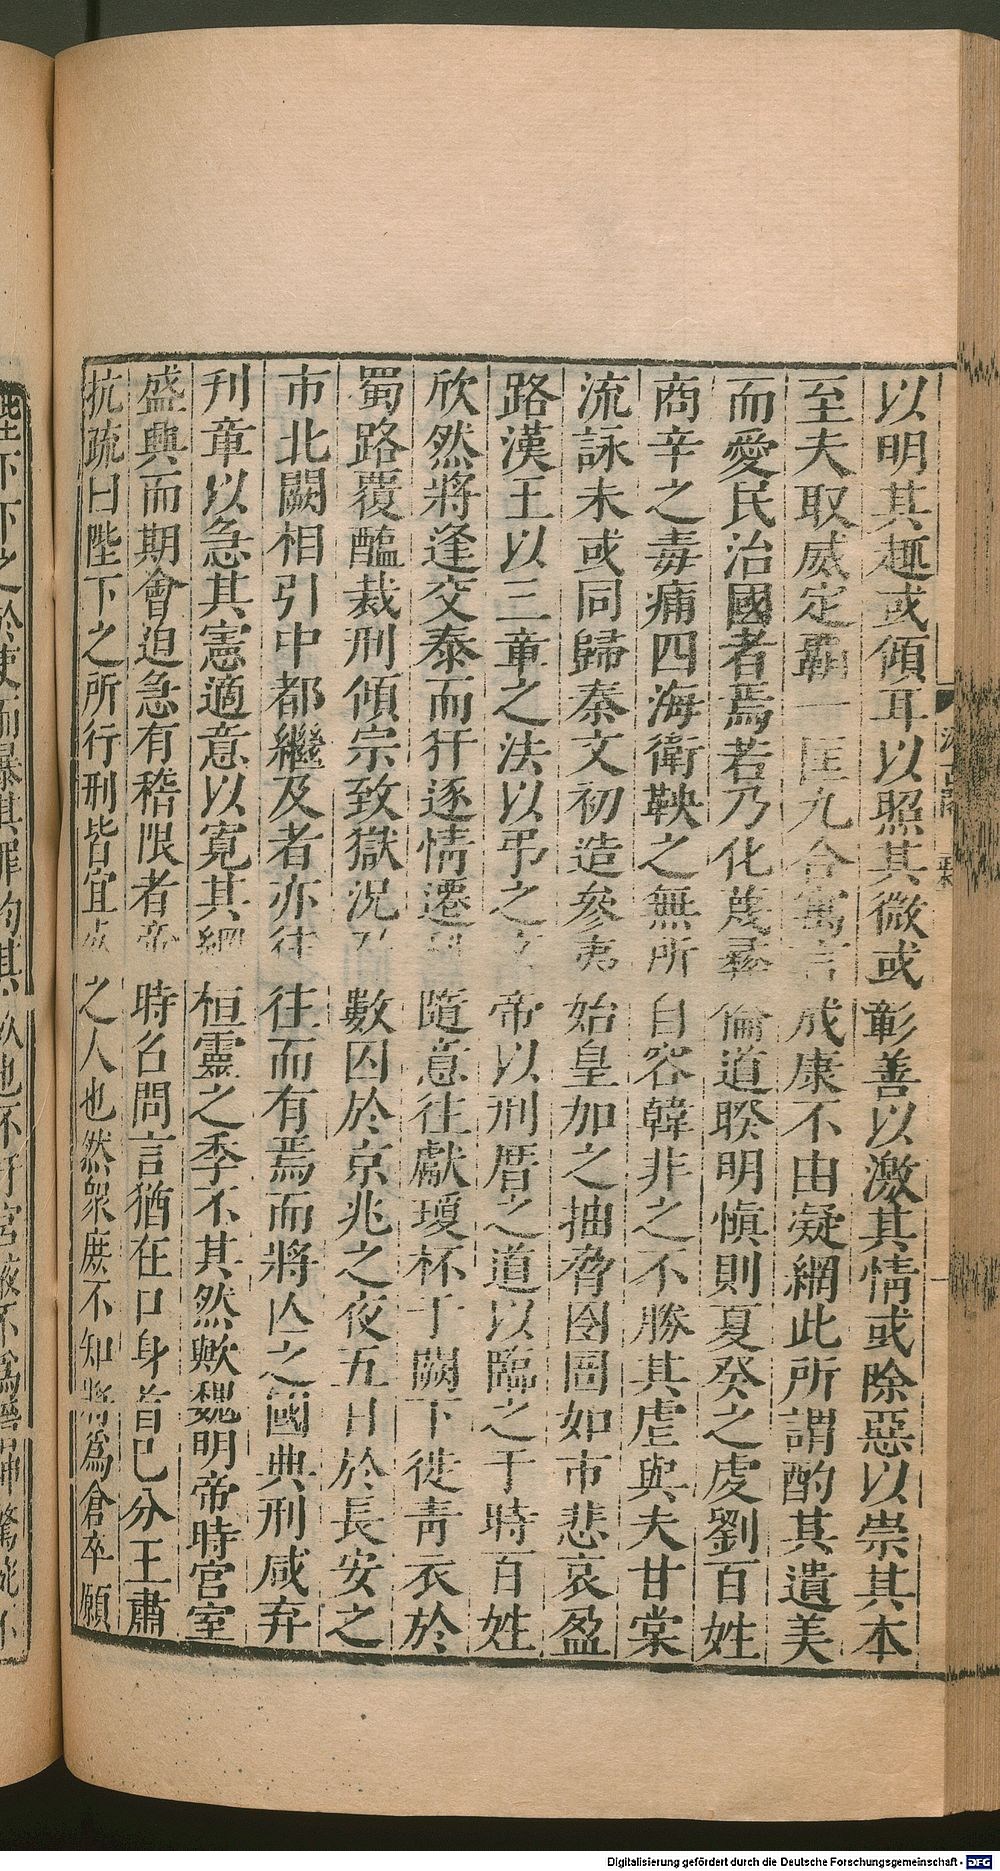 以明其趣或傾耳以照其微或彰善以激其情或除惡以崇其本
至夫取威定霸一匡九合寓言成康不由凝網此所謂酌其遺美
而愛民治國者焉若乃化蔑彝倫道睽明慎則夏癸之虔劉百姓
商辛之毒痛四海衛鞅之無所自容韓非之不勝其虐與夫甘棠
流詠未或同歸秦文初造參夷始皇加之抽脅囹圄如市悲哀盈
路漢王以三章之法以弔之文帝以刑厝之道以臨之于時百姓
欣然將逢交泰而犴逐情遷科隨意往獻瓊杯于闕下徙青衣於
蜀路覆醢裁刑傾宗致獄況乃數囚於京兆之夜五日於長安之
市北闕相引中都繼及者亦往往而有焉而將亾之國典刑咸弃
刊章以急其憲適意以寬其網桓靈之季不其然歟魏明帝時宮室
盛興而期會迫急有稽限者帝時召問言猶在口身首已分王肅
抗疏曰陛下之所行刑皆宜死之人也然衆庶不知將爲倉卒願
Digitalisierung gefördert durch die Deutsche Forschungsgemeinschaft - DFG